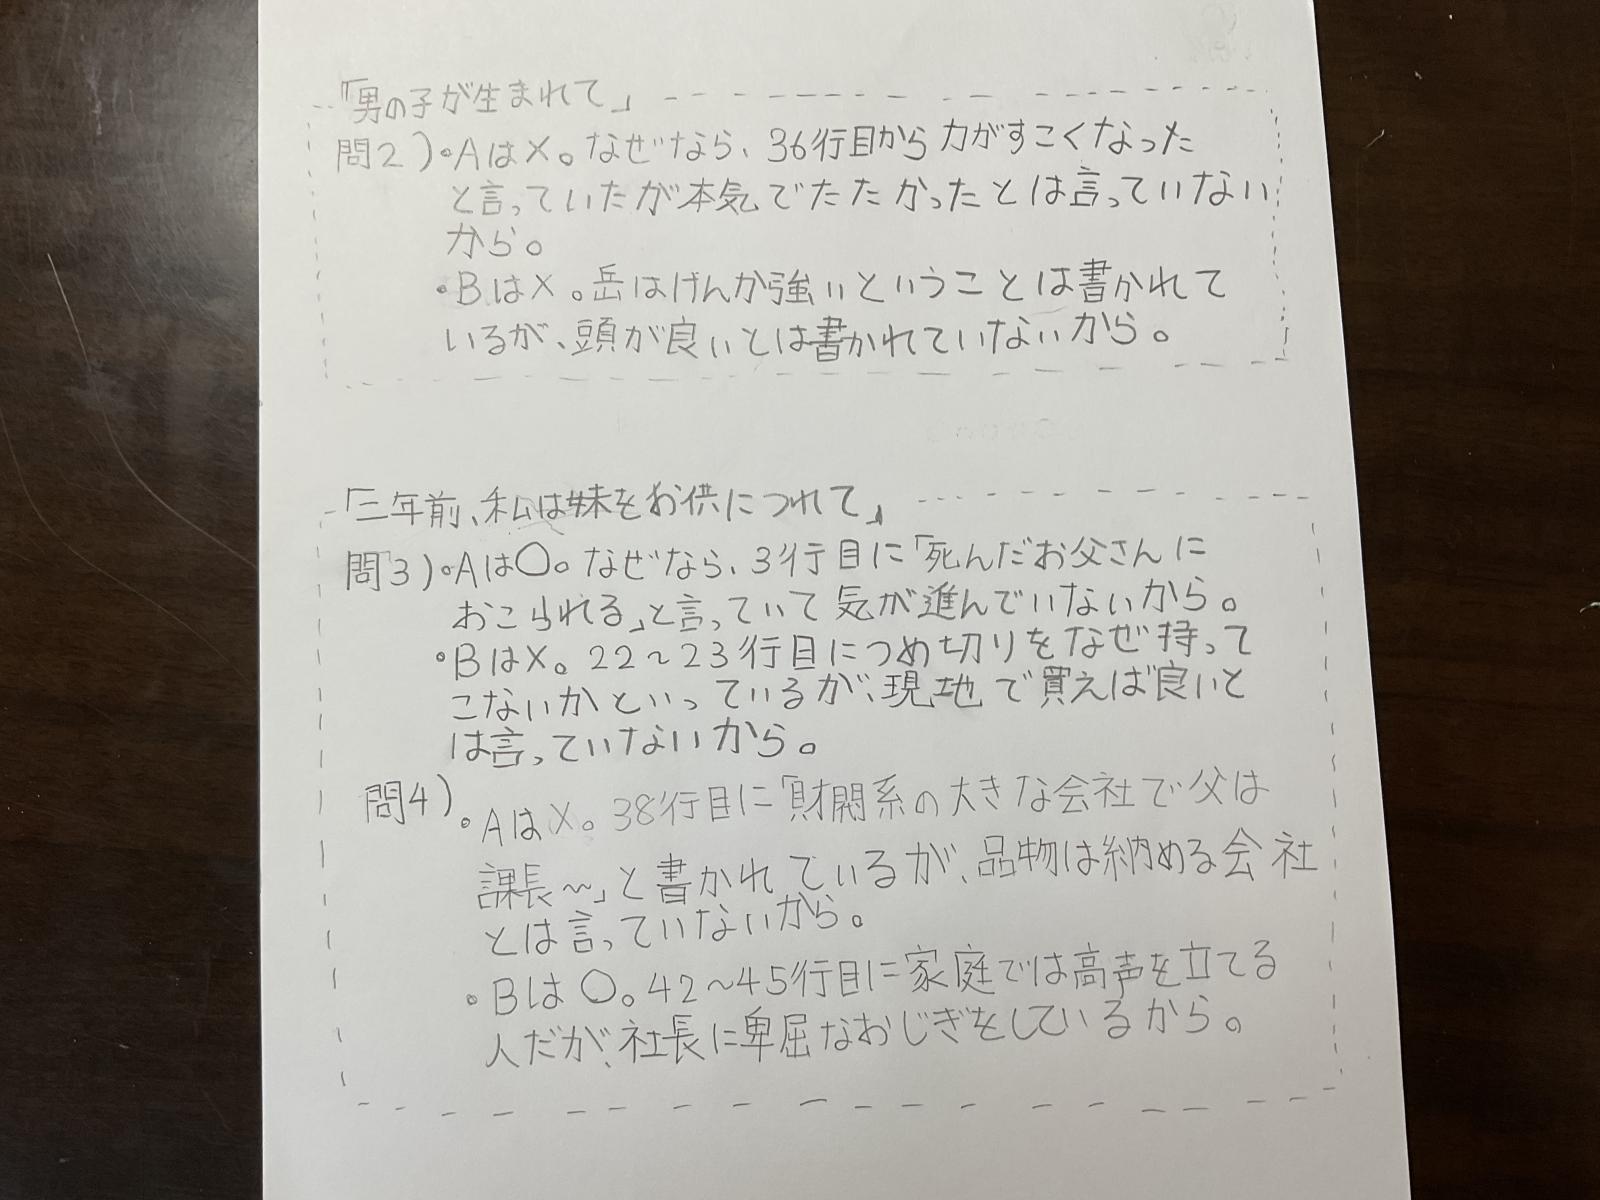 「男の子が生まれて」
問2)・Aは×。なぜなら、36行目から力がすこくなった
と言っていたが本気でたたかったとは言っていない
から。
・Bは×。岳はげんか強いということは書かれて
いるが、頭が良いとは書かれていないから。
「三年前、私は妹をお供につれて」
問3)・Aは〇。なぜなら、3行目に「死んだお父さんに
おこられる」と言っていて気が進んでいないから。
・Bは×。22~23行目につめ切りをなぜ持って
こないかといっているが、現地で買えば良いと
は言っていないから。
問4)・Aは×。38行目に「財閥系の大きな会社で父は
課長~」と書かれているが、品物は納める会社
とは言っていないから。
・Bは〇。42~45行目に家庭では高声を立てる
人だが、社長に卑屈なおじぎをしているから。